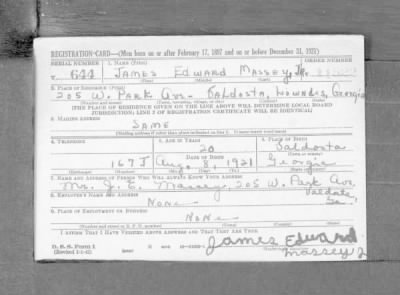 REGISTRATION CARD—(Men born on or after February 17, 1897 and on or before December 31, 1921)
SERIAL NUMBER 1. NAME (Print) ORDER NUMBER
T- 644 JAMES EDWARD MASSEY, JR.
(First) (Middle) (Last)
2. PLACE OF RESIDENCE (Print)
205 W. PARK AVE. VALDOSTA, LOWNDES, GEORGIA
(Number and street) (Town, township, village, or city) (County) (State)
(THE PLACE OF RESIDENCE GIVEN ON THE LINE ABOVE WILL DETERMINE LOCAL BOARD
JURISDICTION; LINE 2 OF REGISTRATION CERTIFICATE WILL BE IDENTICAL)
3. MAILING ADDRESS
SAME
(Mailing address if other than place indicated on line 2. If same insert word same)
4. TELEPHONE 5. AGE IN YEARS 6. PLACE OF BIRTH
20 Valdosta
DATE OF BIRTH
167 J Aug. 8, 1921 Georgia
(Exchange) (Number) (Mo.) (Day) (Yr.) (State or country)
7. NAME AND ADDRESS OF PERSON WHO WILL ALWAYS KNOW YOUR ADDRESS
Mrs. J. E. Massey, 205 W. Park Ave, Valdosta Ga.
8. EMPLOYER'S NAME AND ADDRESS
NONE
9. PLACE OF EMPLOYMENT OR BUSINESS
NONE
(Number and street or R. F. D. number) (Town) (County) (State)
I AFFIRM THAT I HAVE VERIFIED ABOVE ANSWERS AND THAT THEY ARE TRUE.
D. S. S. Form 1
(Revised 1-1-42) (over)
James Edward Massey Jr